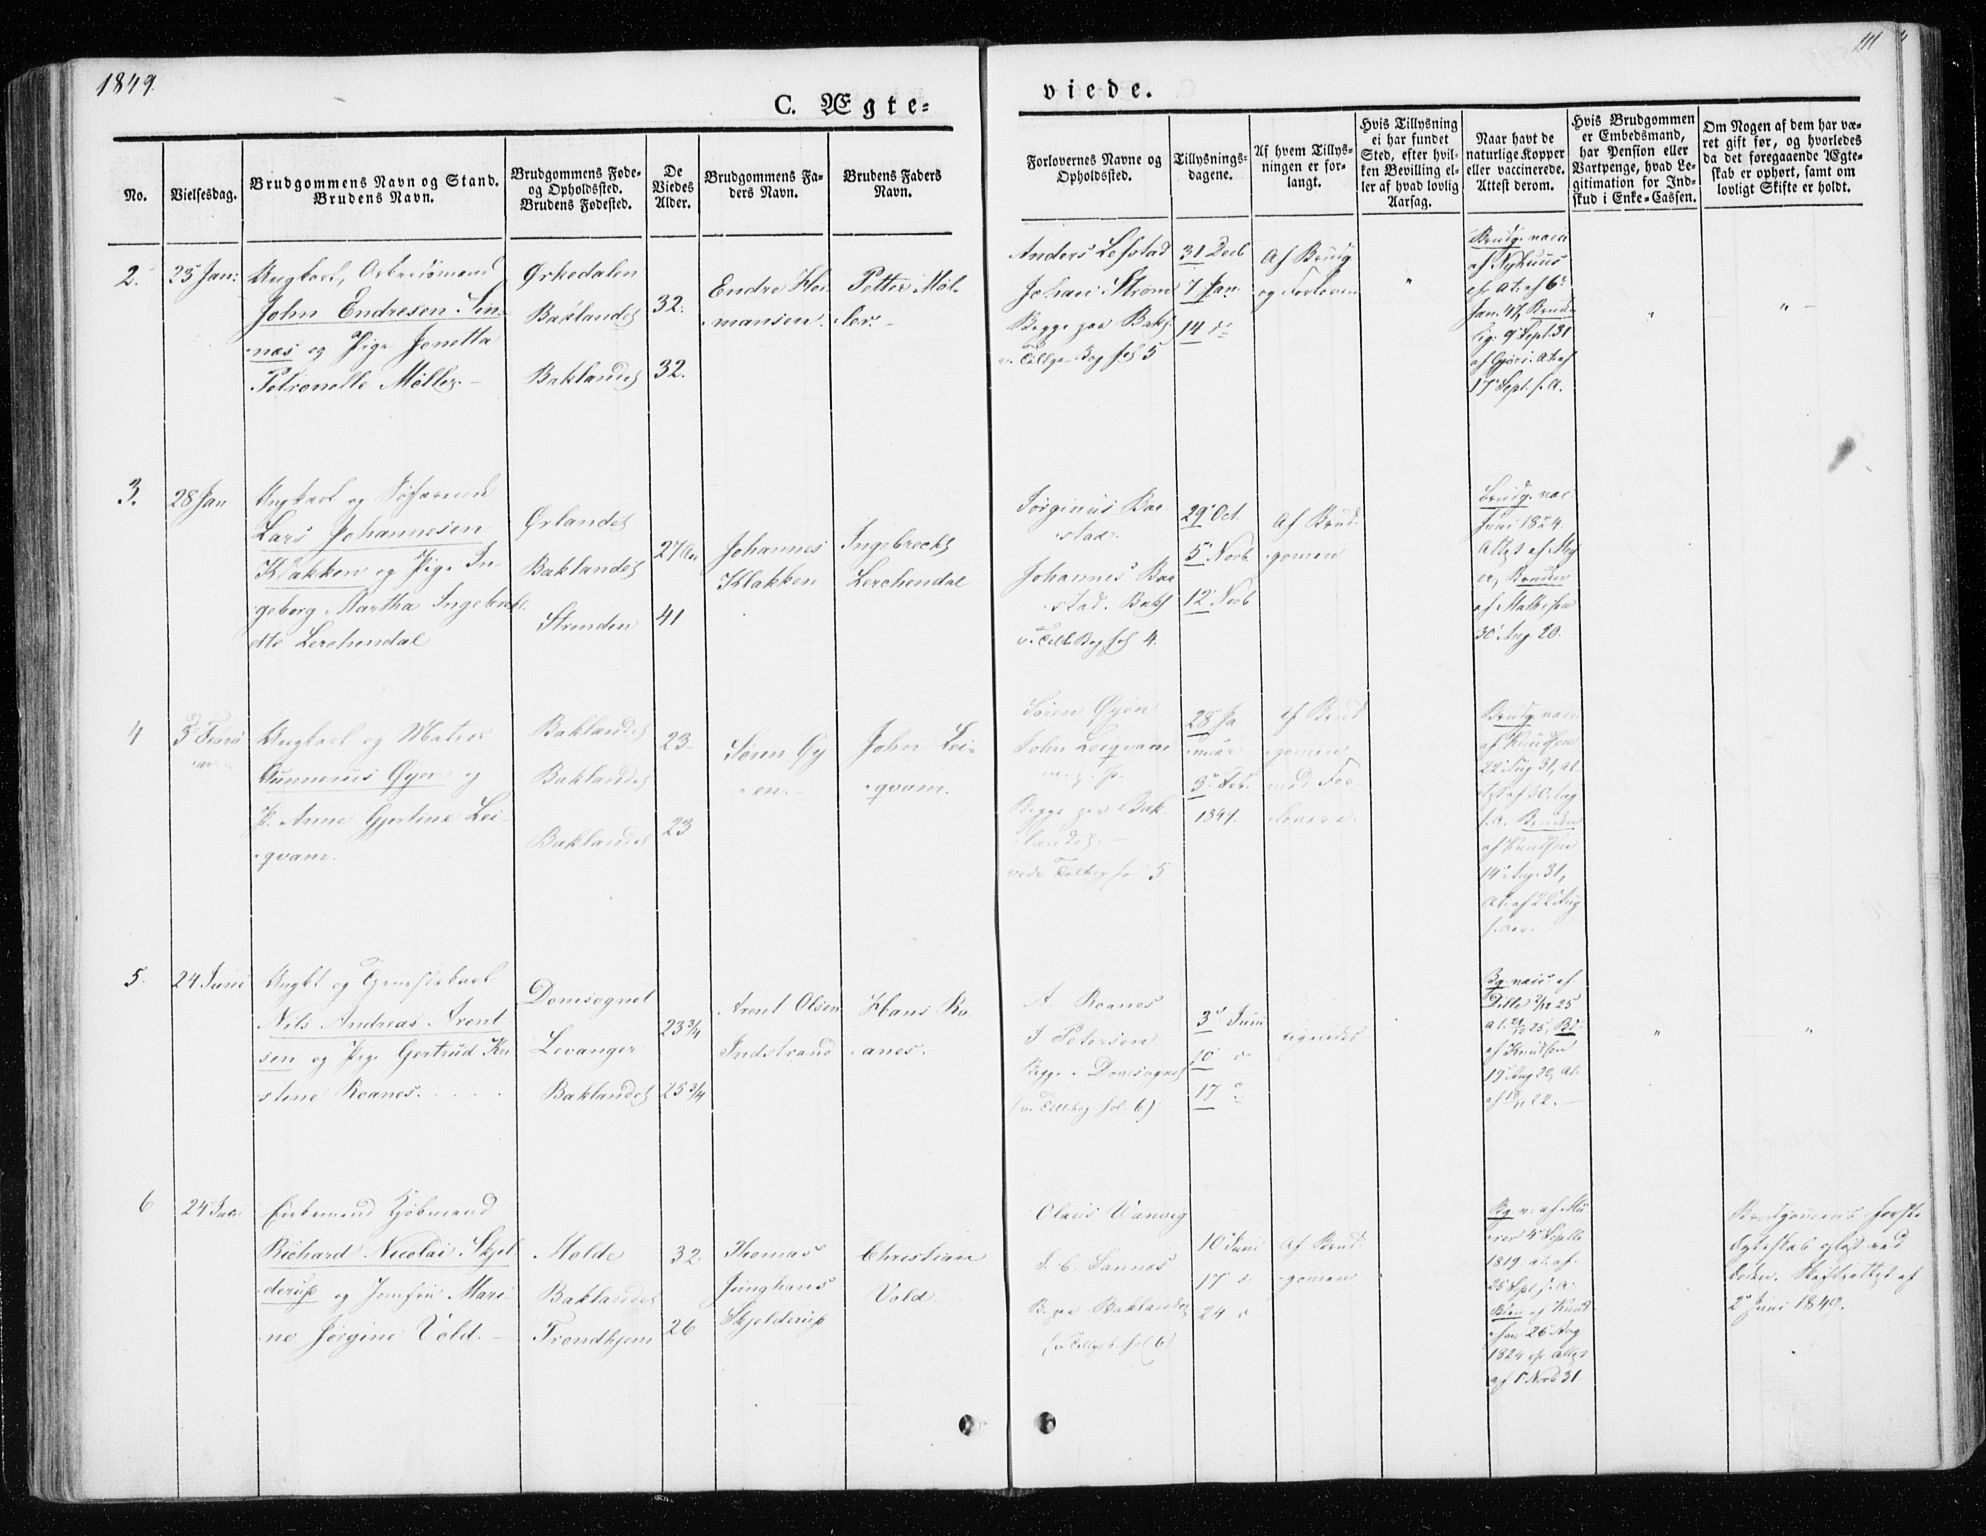 1849.
C. Ægte=
viede.
No.
Vielsesdag.
Brudgommens Navn og Stand.
Brudens Navn.
Brudgommens Føde=
og Opholdssted.
Brudens Fødested.
De
Viedes
Alder.
Brudgommens Fa=
ders Navn.
Brudens Faders
Navn.
Forlovernes Navne og
Opholdssted.
Tillysnings=
dagene.
Af hvem Tillys=
ningen er for=
langt.
Hvis Tillysning
ei har fundet
Sted, efter hvil=
ken Bevilling el=
ler af hvad lovlig
Aarsag.
Naar havt de
naturlige Kopper
eller vaccinerede.
Attest derom.
Hvis Brudgommen
er Embedsmand,
har Pension eller
Vartpenge, hvad Le=
gitimation for Ind=
skud i Enke=Cassen.
Om Nogen af dem har væ=
ret gift før, og hvorledes
da det foregaaende Ægte=
skab er ophørt, samt om
lovligt Skifte er holdt.
2.
25 Jan:
Ungkarl, Arbeidsmand
John Endresen Sin-
næs og Pige Jonetta
Petronelle Møller. -
Ørkedalen
Baklandet
Baklandet
32.
32.
Endre Her-
mansen.
Petter Møl-
ler. -
Anders Lefstad
Johan Strøm
Begge paa Bakl
v. Tillys Bog fol 5
31 Decb
7 Jan.
14 do
Af Brudg
og Forloven
"
Brudg. vacc
Jan. 47, Bruden
9 Sept 31
17 Sept. s. A.
"
"
3.
28 Jan
Ungkarl og Søfarend
Lars Johannesen
Klakken og Pige In-
geborg Martha Ingebrigt-
dtr Lerchendal
Ørlandet
Baklandet
Strinden
27 Aar
41
Johannes
Klakken
Ingebrecht
Lerchendal
Jørginus Bar-
stad
Johannes Bar
stad. Bakl
v. Till Bog fol 4.
29 Oct.
5 Novb
12 Novb
Af Brud-
gomen
Brudg. vac
Juni 1824.
Attest af Mey
er, Bruden
af Mathisen
30 Aug. 20.
4
3 Febru
ar
Ungkarl og Matros
Gunnerius Øyen og
P. Anne Gjertine Lei-
qvam. -
Baklandet
Baklandet
Baklandet
23
23
Søren Øy
en. -
John Lei-
qvam.
Søren Øyen
John Leiqvam
Begge paa Bak-
landet. -
vide Tillbog fol 5
28 Ja
nuar
3 Feb.
1849.
Af Brud
gomen
med For-
lovere.
Brudg vacc
af Knudsen
22 Aug 31, At-
test af 30 Aug
s. A. Bruden
af Knudsen
14 Aug. 31,
At. af 22 Aug
5.
24 Juni
Nils Andreas Arent
sen og Pige Gertrud Kri
stine Roanes. . . . .
Domsognet
Levanger
Baklandet
23 3/4
25 3/4
Arent Olsen
Indstrand
Hans Ro
anes.
A. Roanes
J Petersen
Begge i Domsognet
(v. Tillbog fol. 6)
3 Juni
10 d
17 d
ligeledes
Bg. vacc af
af Knudsen
19 Aug 22, At.
"
"
6
24 Juni
Enkemand Kjøbmand
Richard Nicolai Skjel
derup og Jomfru Mari-
ne Jørgine Vold. -
Molde
Baklandet
Trondhjem
32.
26
Thomas
Junghans
Skjelderup
Christian
Vold -
Olaus Vanvig
J. C. Sannes
B. paa Baklandet
(v Tillysb. fol 6)
10 Juni
17 d
24 d
Af Brud-
gomen
Bg. v. af Mü
1819. at. af
25 Sept s. A.
26 Aug
1824
af 1 Novb 31
Brudgomens første
Ægteskab opløst ved
Døden. Skifteattest af
2 Juni 1849.